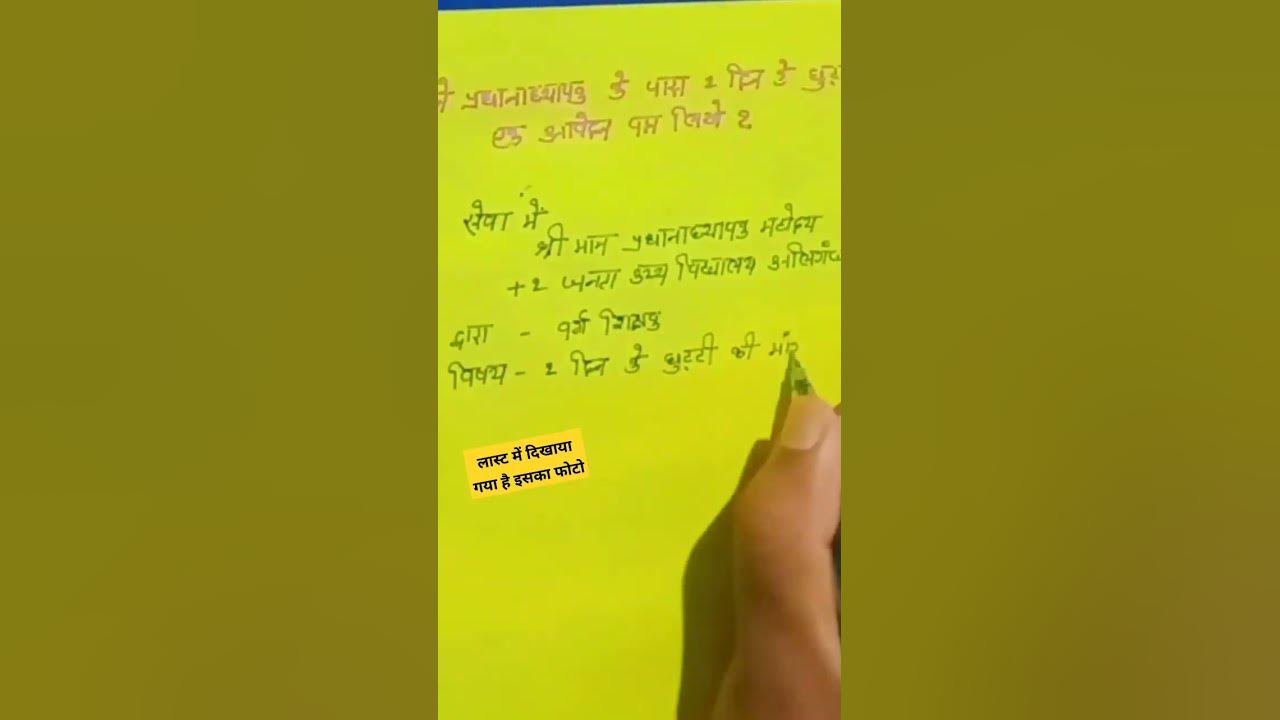 ने प्रधानाध्यापक के पास 2 दिन के छुट्
एक आवेदन पत्र लिखे ?
सेवा में
श्री मान प्रधानाध्यापक महोदय
+2 जनता उच्च विद्यालय अलिगंज
द्वारा - वर्ग शिक्षक
विषय - 2 दिन के छुट्टी की मां
लास्ट में दिखाया
गया है इसका फोटो